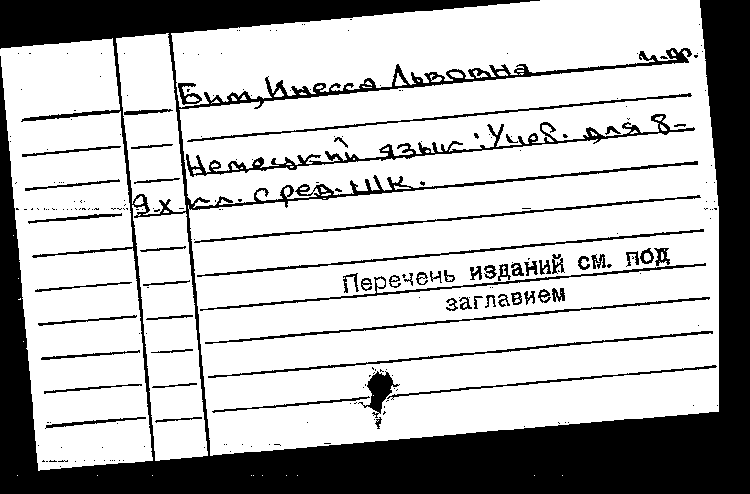 Бим, Инесса Львовна и др.
Немецкий язык: Учеб. для 8-
9х кл. сред. шк.
Перечень изданий см. под
заглавием